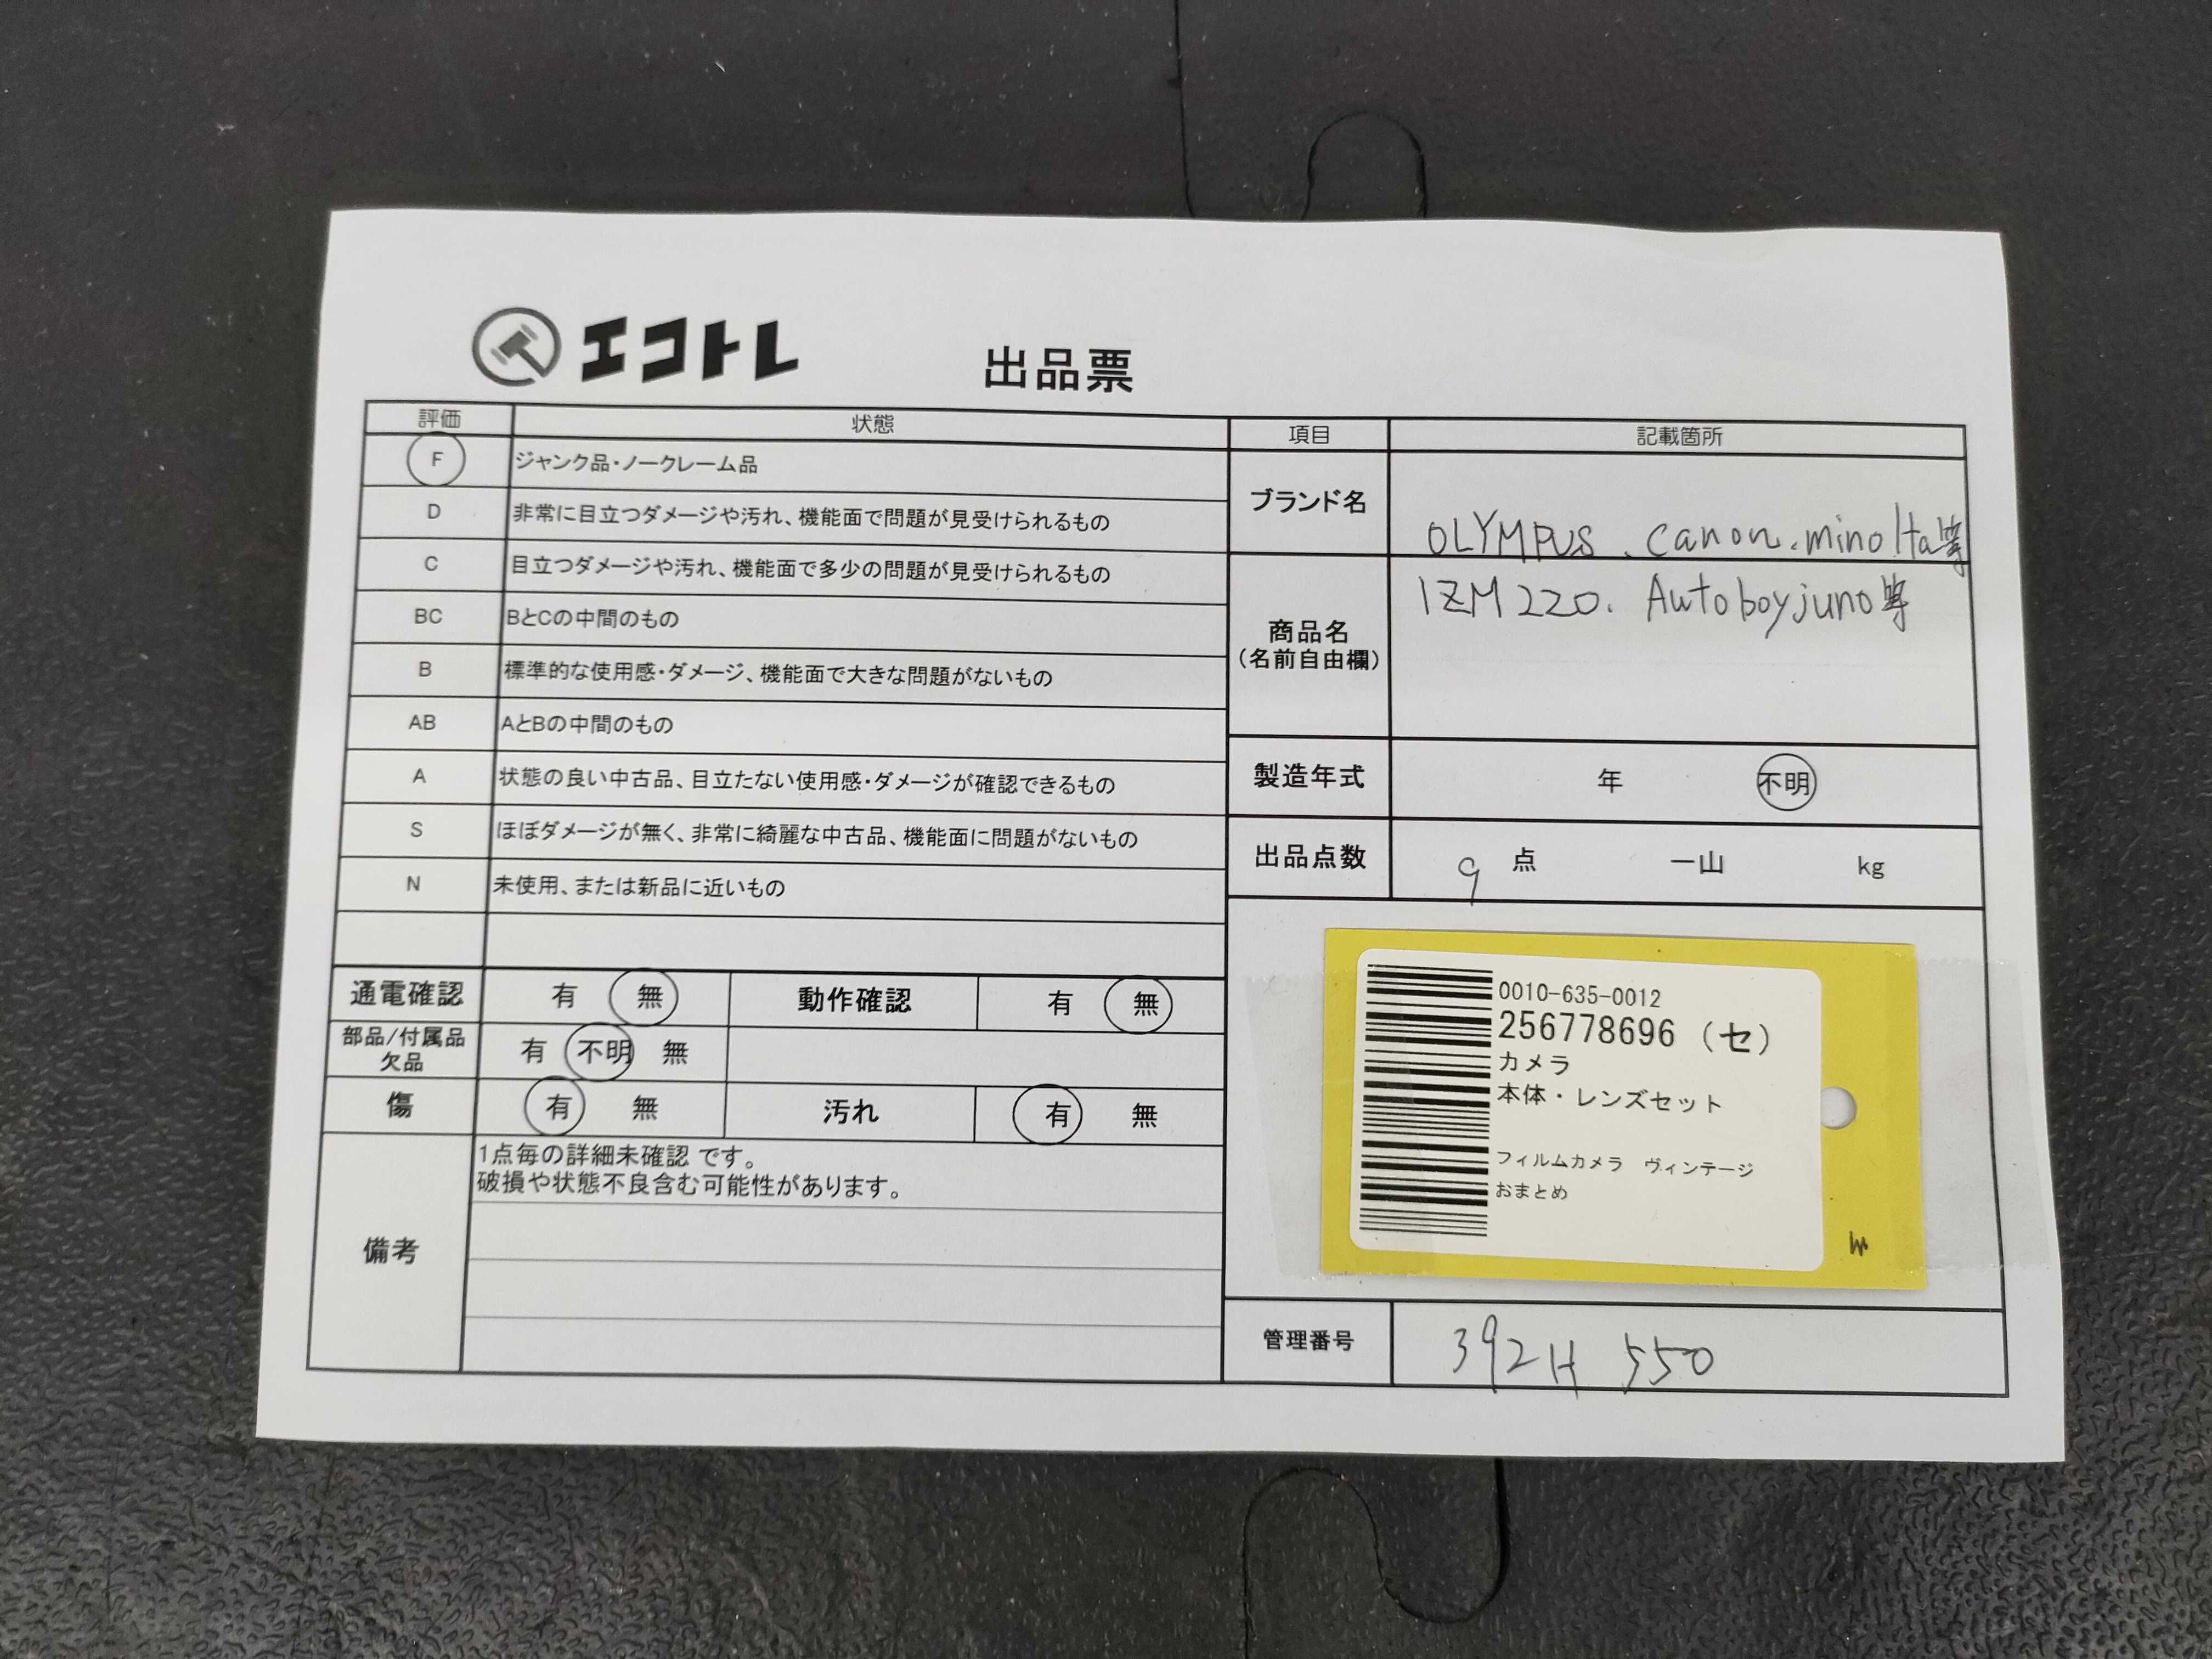 エコトレ
出品票
評価 状態
F ジャンク品・ノークレーム品
D 非常に目立つダメージや汚れ、機能面で問題が見受けられるもの
C 目立つダメージや汚れ、機能面で多少の問題が見受けられるもの
BC BとCの中間のもの
B 標準的な使用感・ダメージ、機能面で大きな問題がないもの
AB AとBの中間のもの
A 状態の良い中古品、目立たない使用感・ダメージが確認できるもの
S ほぼダメージが無く、非常に綺麗な中古品、機能面に問題がないもの
N 未使用、または新品に近いもの
通電確認 有 無 動作確認 有 無
部品/付属品
欠品 有 不明 無
傷 有 無 汚れ 有 無
備考
1点毎の詳細未確認 です。
破損や状態不良含む可能性があります。
項目 記載箇所
ブランド名 OLYMPUS、canon、minolta等
商品名
(名前自由欄)
IZM220、Autoboyjuno等
製造年式 年 不明
出品点数 9 点 一山 kg
0010-635-0012
256778696 (セ)
カメラ
本体・レンズセット
フィルムカメラ ヴィンテージ
おまとめ
管理番号 392H 550